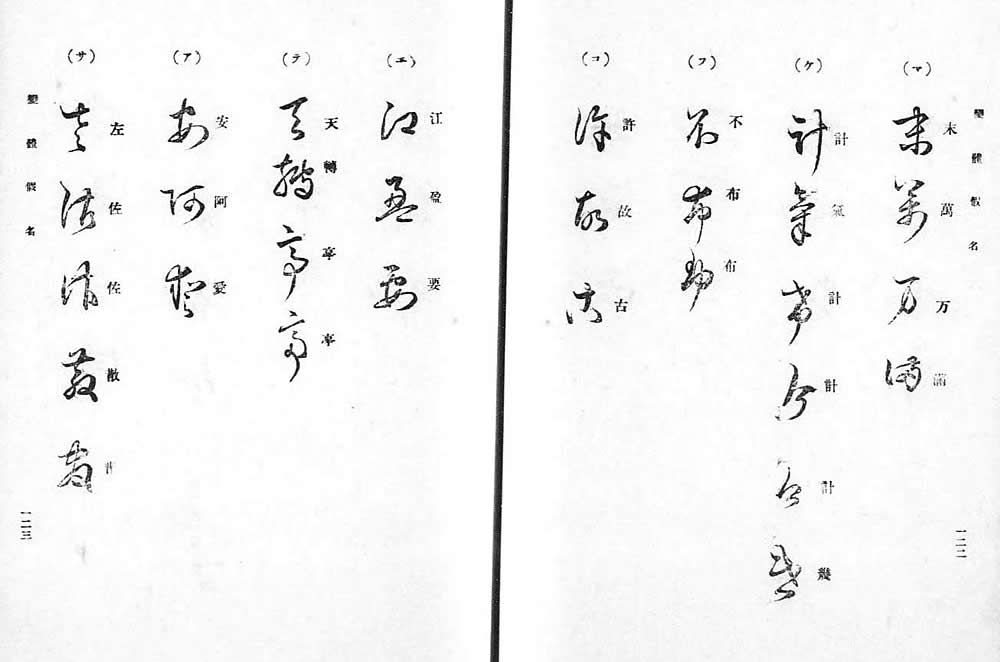 變體假名
(マ)
末 萬 万 滿
(ケ)
計 氣 計 計 計 幾
(フ)
不 布 布
(コ)
許 故 古
一二二
(エ)
江 盈 要
(テ)
天 轉 亭 亭
(ア)
安 阿 愛
(サ)
左 佐 佐 散
變體假名
一二三